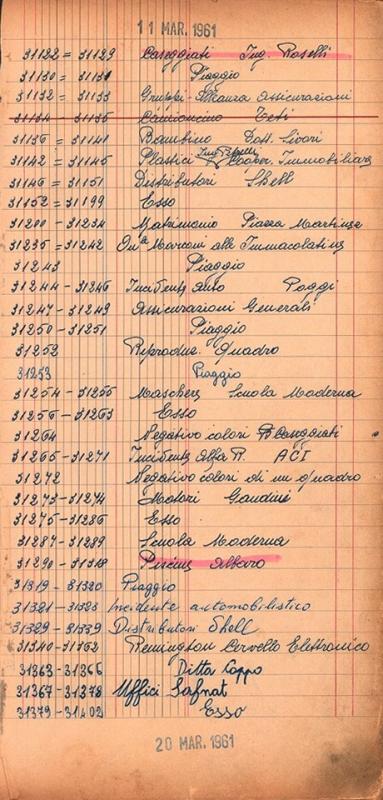 11 MAR. 1961
31122 = 31129 Caseggiati Ing. Roselli
31130 = 31131 Piaggio
31132 = 31133 Gruppi - Alleanza Assicurazioni
31134 - 31135 Camioncino Teti
31136 = 31141 Bambino Dott. Sivori
31142 = 31145 Plastici Cooper. Immobiliare
31146 = 31151 Distributori Shell
31152 = 31199 Esso
31200 - 31234 Matrimonio Piazza Martinez
31235 - 31242 On.le Marconi alle Immacolatine
31243 Piaggio
31244 - 31246 Incidente auto Poggi
31247 - 31249 Assicurazioni Generali
31250 - 31251 Piaggio
31252 Reproduz. Quadro
31253 Piaggio
31254 - 31255 Maschere Scuola Moderna
31256 - 31263 Esso
31264 Negativo colori Caseggiati
31265 - 31271 Incidente Alfa R. ACI
31272 Negativo colori di un quadro
31273 - 31274 Motori Gaudini
31275 - 31286 Esso
31287 - 31289 Scuola Moderna
31290 - 31318 Piscine Albaro
31319 - 31320 Piaggio
31321 - 31328 Incidente automobilistico
31329 - 31339 Distributori Shell
31340 - 31362 Remington Cervello Elettronico
31363 - 31366 Ditta Coppo
31367 - 31378 Uffici Safnat
31379 - 31402 Esso
20 MAR. 1961